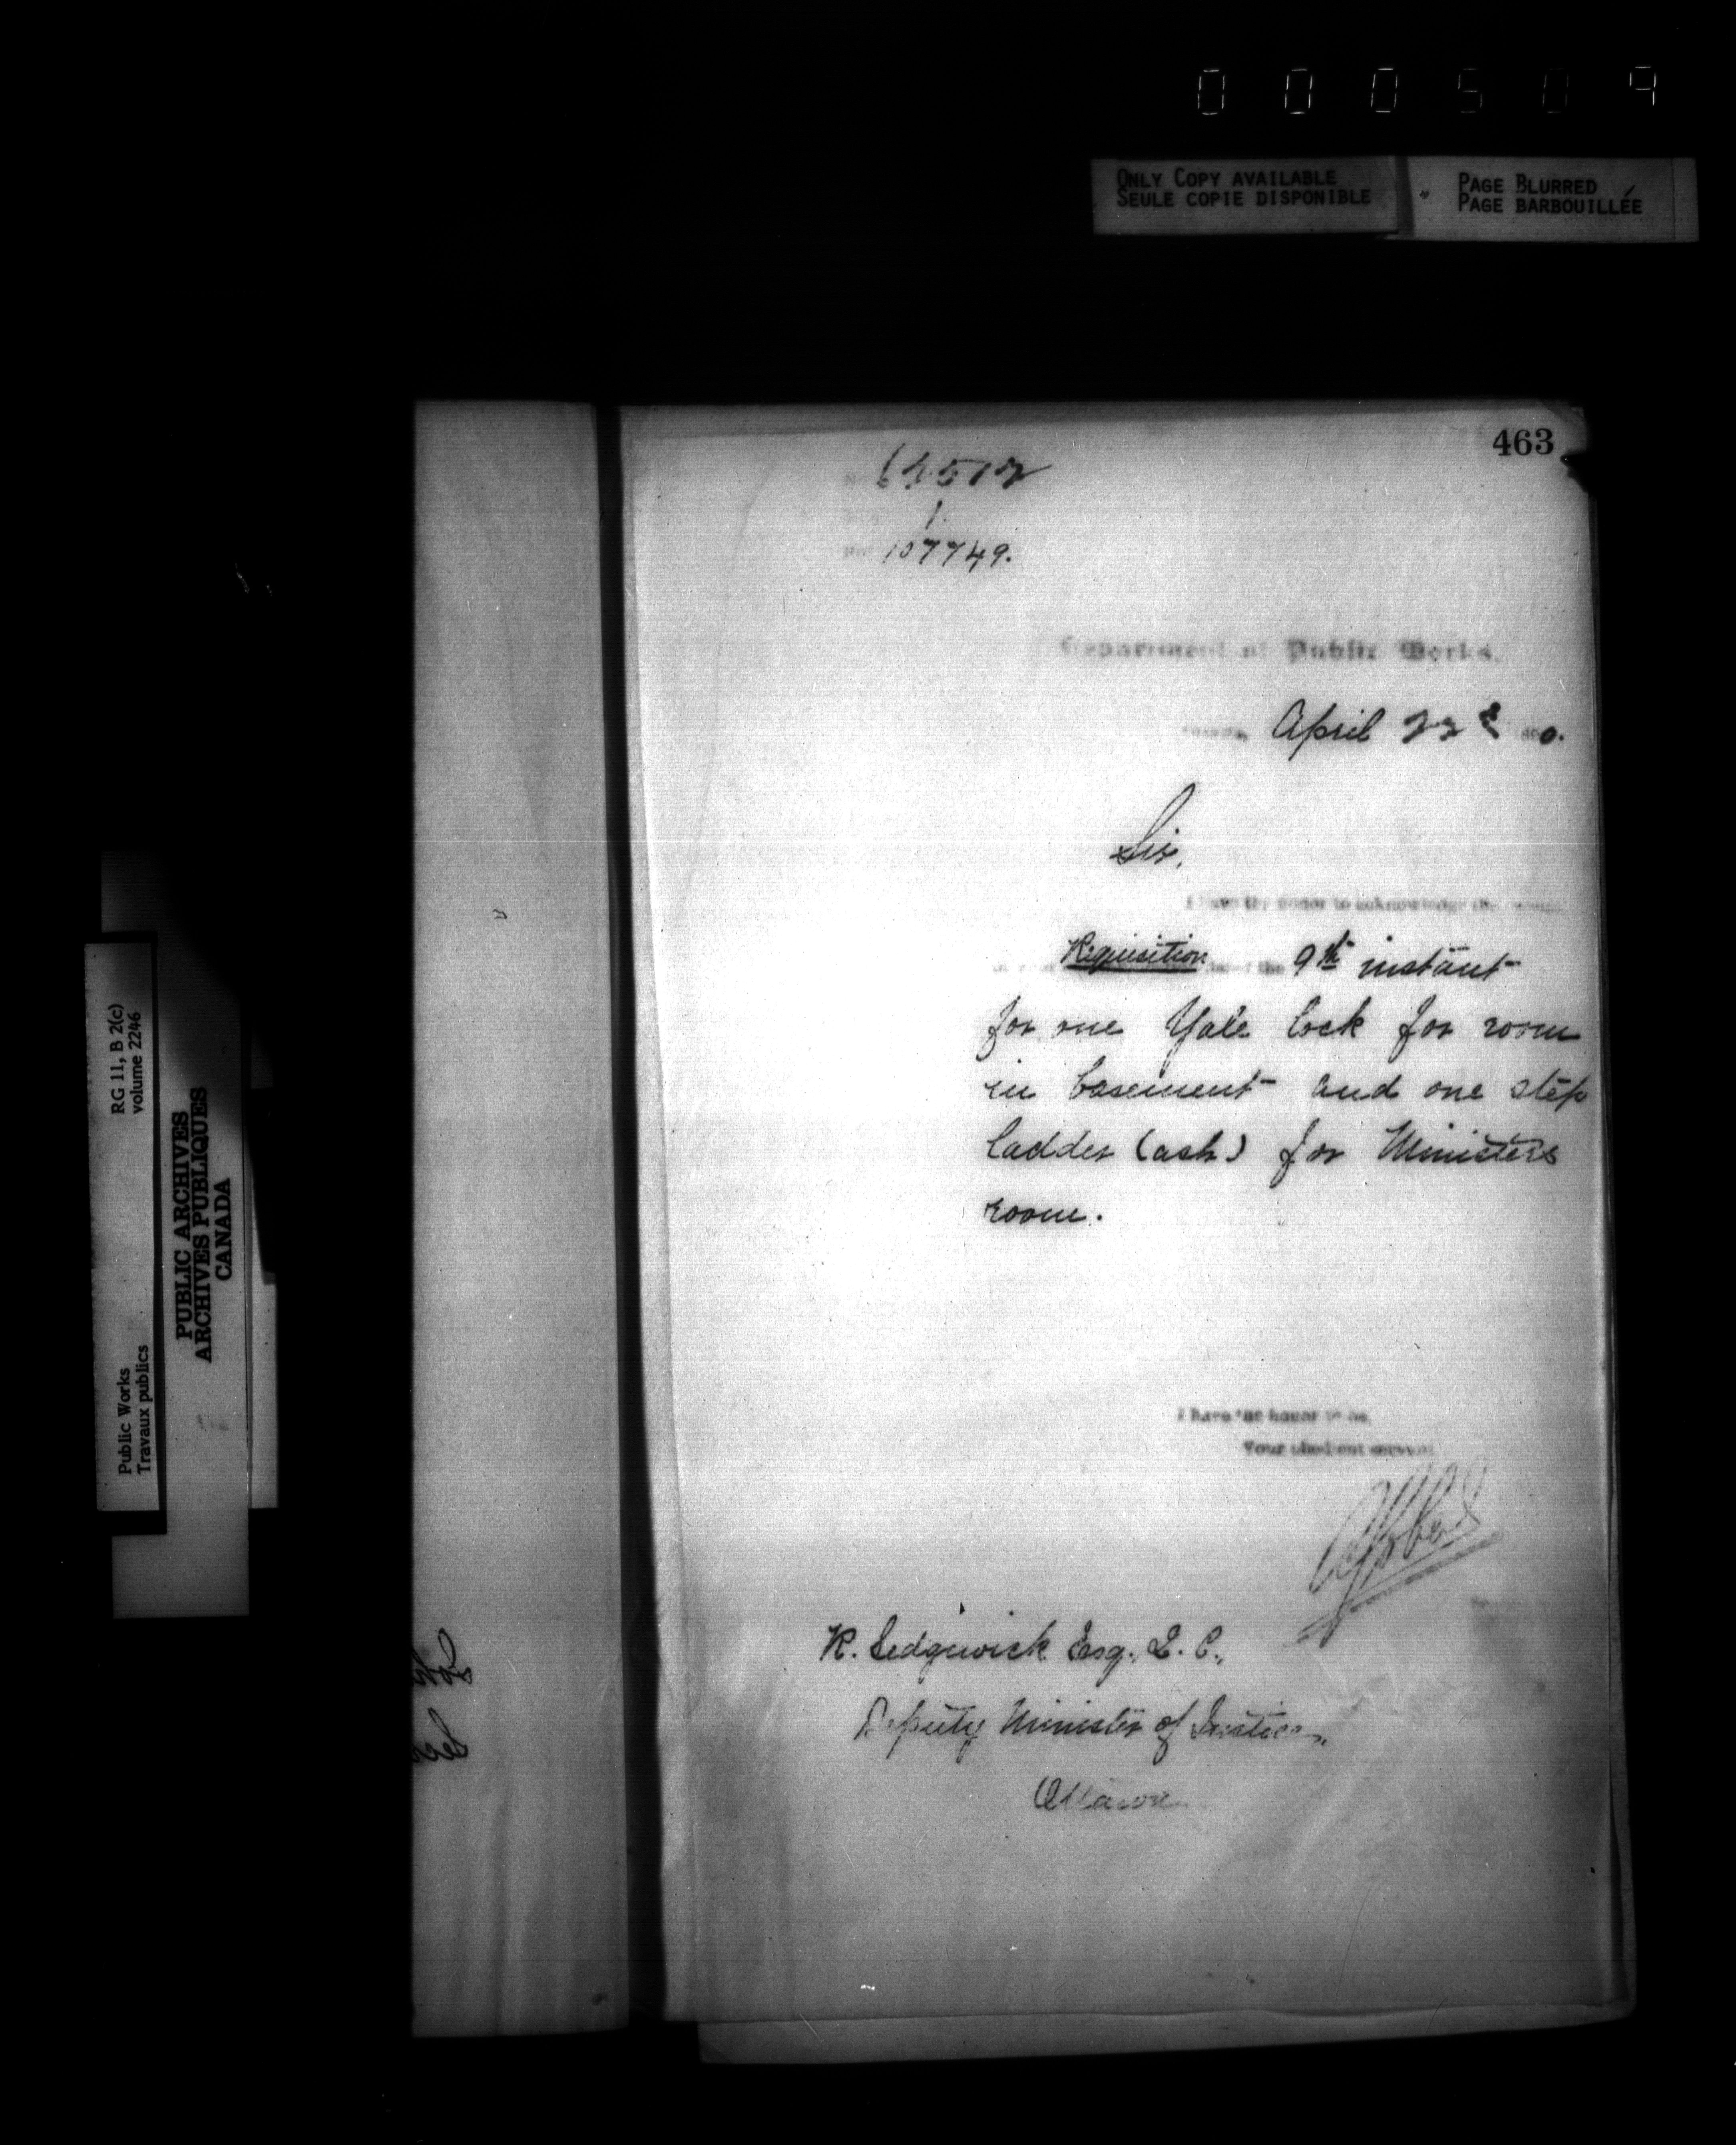 000509
ONLY COPY AVAILABLE
SEULE COPIE DISPONIBLE
PAGE BLURRED
PAGE BARBOUILLÉE
463
107749.
Department of Public Works.
April 22
Sir,
I have the honor to acknowledge the
Requisition 9th instant
for one Yale lock for room
in basement and one step
ladder (ash) for Ministers
room.
I have the honor to be,
Your obedient servant
R. Sedgewick Esq., Q. C.,
Deputy Minister of Justice,
Ottawa
RG 11, B 2(c)
volume 2246
Public Works
Travaux publics
PUBLIC ARCHIVES
ARCHIVES PUBLIQUES
CANADA